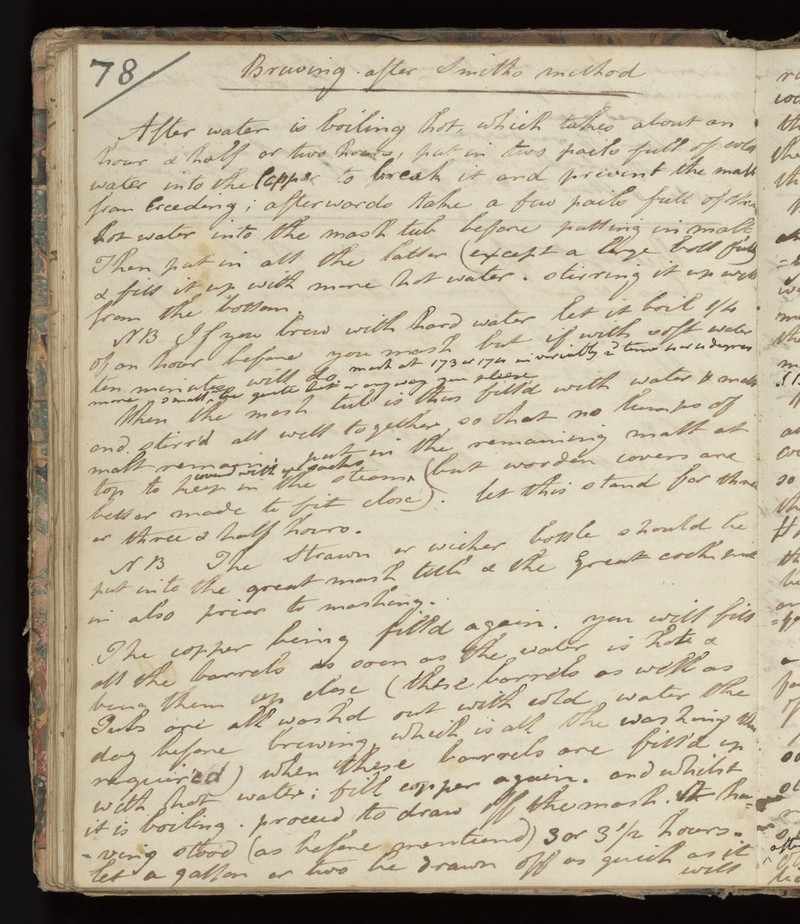 78
Bruving after Smiths method
After water is boiling hot, which takes about an
hour & half or two hours, put in two pails full of cold
water into the Copper to break it and prevent the malt
from ; afterwards take a few pails full of this
hot water into the mash tub before putting in malt
Then put in all the latter (except a large boll full)
& fill it up with more hot water. stirring it up well
from the bottom.
NB If you brew with hard water let it boil 1/4
of an hour before you mash but if with soft water
ten minutes will do mash at 173 or 174 invariably 2d time 4 or 6 degrees
more small be quite hot or any way you please
When the mash tub is thus fill'd with water & malt
and stirr'd all well together, so that no lumps of
malt remain: put in the remaining malt at
top to keep in the steam, cover'd with sacks (but wooden covers are
better made to fit close). let this stand for three
or three & half hours.
NB The Strawn or wicker bottle should be
put into the great mash tub & the great cock
in also prior to mashing.
The copper being fill'd again. you will fill
all the barrels as soon as the water is hot &
bung them up close (these barrels as well as
Tubs are all wash'd out with cold water the
day before brewing which is all the washing
required) when these barrels are fill'd up
with hot water; fill copper again. and whilst
it is boiling. proceed to draw off the mash. It ha=
-ving stood (as before mentiend) 3 or 3 1/2 hours.
let a gallon or two be drawn off as quick as it
will